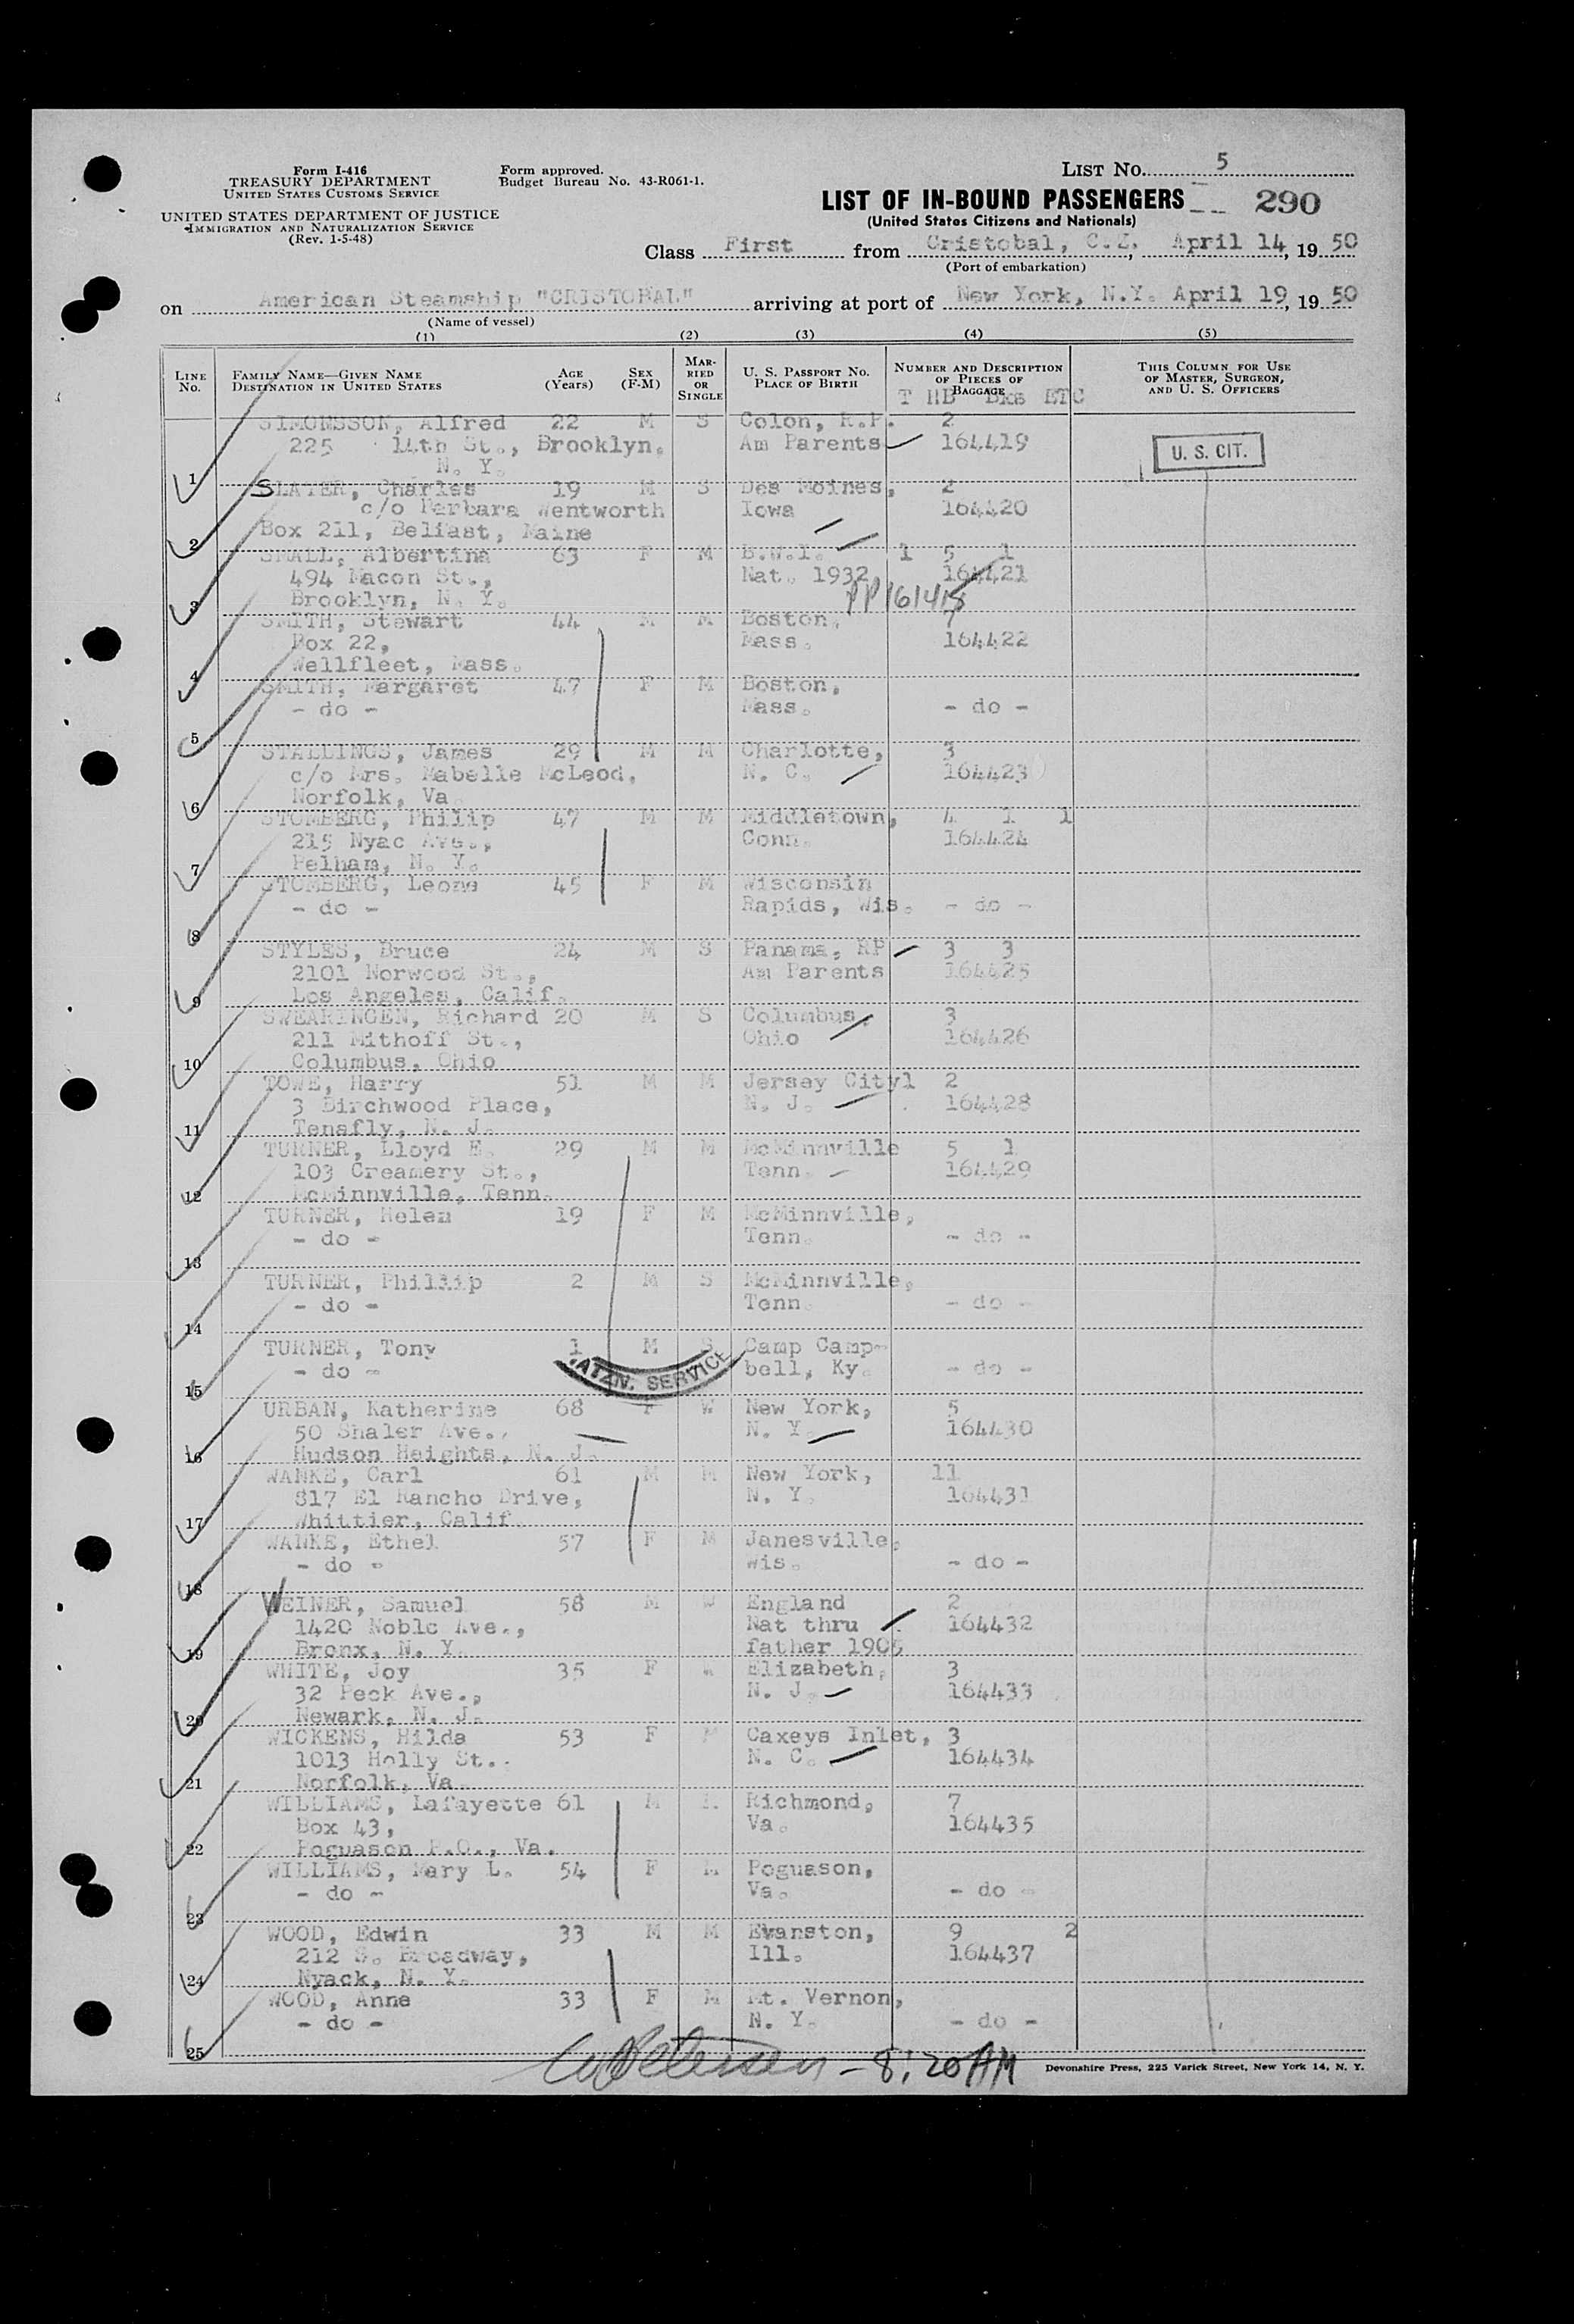 Form I-416
TREASURY DEPARTMENT
UNITED STATES CUSTOMS SERVICE
UNITED STATES DEPARTMENT OF JUSTICE
IMMIGRATION AND NATURALIZATION SERVICE
(Rev. 1-5-48)
Form approved.
Budget Bureau No. 43-R061-1.
LIST No. 5
LIST OF IN-BOUND PASSENGERS 290
(United States Citizens and Nationals)
Class First from Cristobal, C.Z., April 14, 19 50
(Port of embarkation)
on American Steamship "CRISTOBAL" arriving at port of New York, N.Y. April 19, 19 50
(Name of vessel)
(1) (2) (3) (4) (5)
LINE No.
FAMILY NAME—GIVEN NAME
DESTINATION IN UNITED STATES
AGE (Years)
SEX (F-M)
MARRIED OR SINGLE
U. S. PASSPORT No.
PLACE OF BIRTH
NUMBER AND DESCRIPTION OF PIECES OF BAGGAGE
T HB Bks ETC
THIS COLUMN FOR USE OF MASTER, SURGEON, AND U. S. OFFICERS
SIMONSSON, Alfred 22 M S Colon, R.P. 2
225 14th St., Brooklyn. Am Parents 164419 U. S. CIT.
1 N. Y.
SLATER, Charles 19 M S Des Moines, 2
c/o Barbara Wentworth Iowa 164420
2 Box 211, Belfast, Maine
SMALL, Albertina 63 F M B.W.I. 1 5 1
494 Macon St., Nat. 1932, 164421
3 Brooklyn, N. Y. PP161418
SMITH, Stewart 44 M M Boston, 7
Box 22, Mass. 164422
4 Wellfleet, Mass.
SMITH, Margaret 47 F M Boston,
- do - Mass. - do -
5
STALLINGS, James 29 M M Charlotte, 3
c/o Mrs. Mabelle McLeod, N. C. 164423
6 Norfolk, Va.
STOMBERG, Philip 47 M M Middletown, 4 1 1
215 Nyac Ave., Conn. 164424
7 Pelham, N. Y.
STOMBERG, Leone 45 F M Wisconsin
- do - Rapids, Wis. - do -
8
STYLES, Bruce 24 M S Panama, RP 3 3
2101 Norwood St., Am Parents 164425
9 Los Angeles, Calif.
SWEARINGEN, Richard 20 M S Columbus, 3
211 Mithoff St., Ohio 164426
10 Columbus, Ohio
TOWE, Harry 51 M M Jersey City1 2
3 Birchwood Place, N. J. 164428
11 Tenafly, N. J.
TURNER, Lloyd E. 29 M M McMinnville 5 1
103 Creamery St., Tenn. 164429
12 McMinnville, Tenn.
TURNER, Helen 19 F M McMinnville,
- do - Tenn. - do -
13
TURNER, Phillip 2 M S McMinnville,
- do - Tenn. - do -
14
TURNER, Tony 1 M S Camp Camp-
- do - bell, Ky. - do -
15 NATZN. SERVICE
URBAN, Katherine 68 F W New York, 5
50 Shaler Ave., N. Y. 164430
16 Hudson Heights, N. J.
WANKE, Carl 61 M M New York, 11
817 El Rancho Drive, N. Y. 164431
17 Whittier, Calif.
WANKE, Ethel 57 F M Janesville,
- do - Wis. - do -
18
WEINER, Samuel 58 M W England 2
1420 Noble Ave., Nat thru 164432
19 Bronx, N. Y. father 1905
WHITE, Joy 35 F Elizabeth, 3
32 Peck Ave., N. J. 164433
20 Newark, N. J.
WICKENS, Hilda 53 F M Caxeys Inlet, 3
1013 Holly St.. N. C. 164434
21 Norfolk, Va.
WILLIAMS, Lafayette 61 M Richmond, 7
Box 43, Va. 164435
22 Poguason P.O., Va.
WILLIAMS, Mary L. 54 F M Poguason,
- do - Va. - do -
23
WOOD, Edwin 33 M M Evanston, 9 2
212 S. Broadway, Ill. 164437
24 Nyack, N. Y.
WOOD, Anne 33 F M Mt. Vernon,
- do - N. Y. - do -
25
Petersen - 8:20 AM
Devonshire Press, 225 Varick Street, New York 14, N. Y.